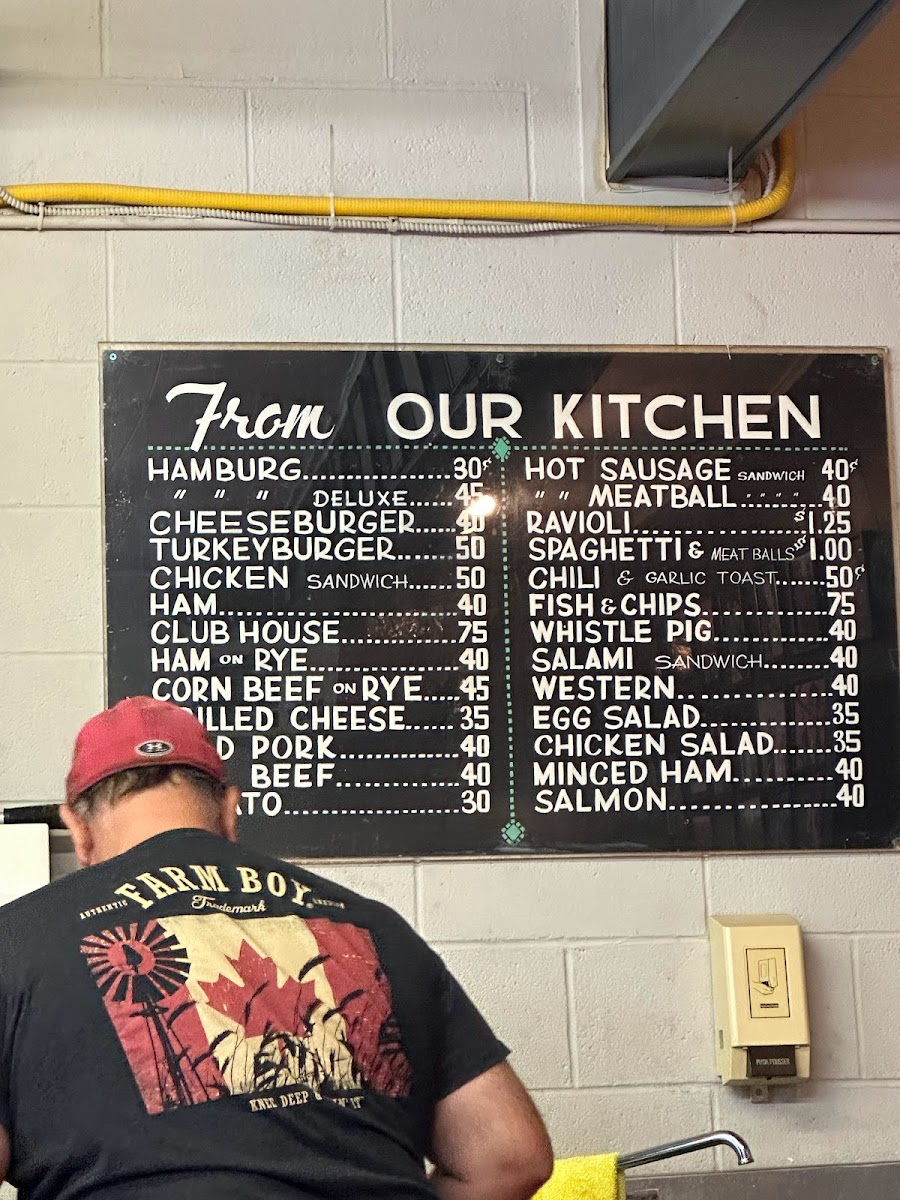 From OUR KITCHEN
HAMBURG....................30¢
" " " DELUXE......45
CHEESEBURGER......40
TURKEYBURGER.......50
CHICKEN SANDWICH......50
HAM................................40
CLUB HOUSE...............75
HAM ON RYE...................40
CORN BEEF ON RYE.....45
ILLED CHEESE.......35
D PORK................40
BEEF................40
ATO.........................30
HOT SAUSAGE SANDWICH 40¢
" " MEATBALL " " " " 40
RAVIOLI.....................$1.25
SPAGHETTI & MEAT BALLS $1.00
CHILI & GARLIC TOAST.......50¢
FISH & CHIPS................75
WHISTLE PIG...............40
SALAMI SANDWICH........40
WESTERN....................40
EGG SALAD.................35
CHICKEN SALAD.......35
MINCED HAM.............40
SALMON.....................40
AUTHENTIC FARM BOY
Trademark
KNEE DEEP IN IT
PUSH